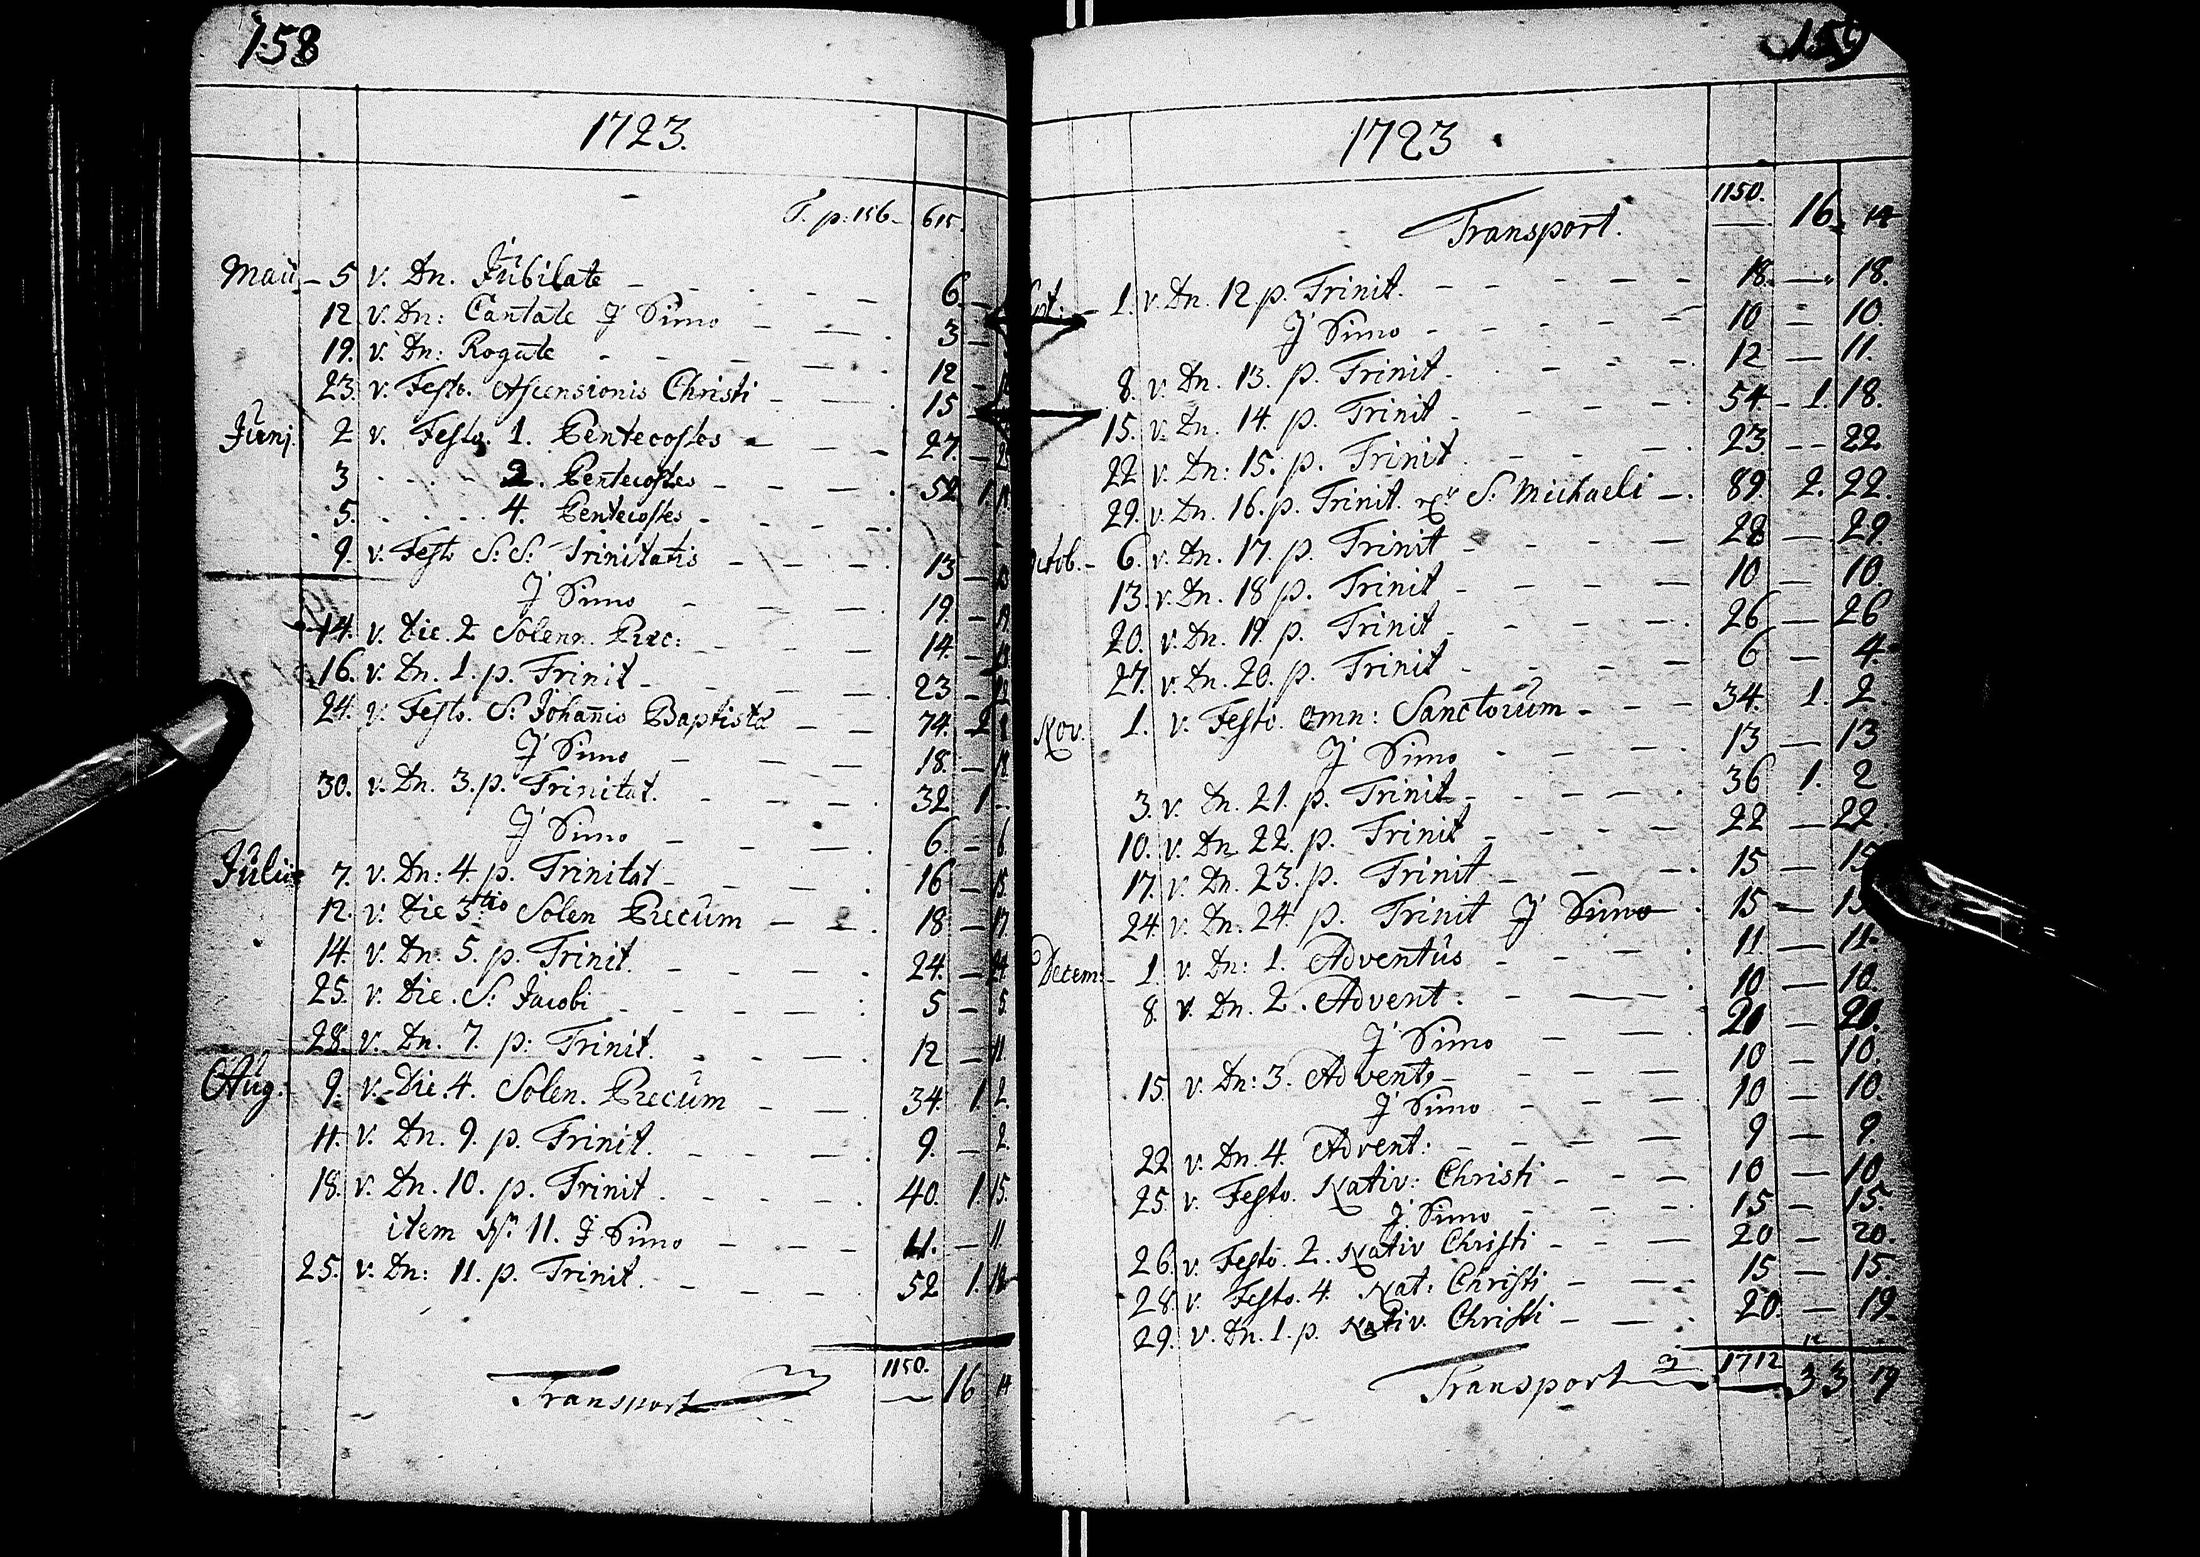 158
1723.
T. p: 156 - 615.
Maii - 5 v. Dn. Jubilate - 6. -
12 v. Dn: Cantate J Simo - 3 -
19. v. Dn: Rogate - 12 -
23. v. Festo. Ascensionis Christi - 15 -
Junj. 2 v. Festo. 1. Pentecostes - 27. -
3 2. Pentecostes - 52 1.
5. 4. Pentecostes -
9. v. Festo S. S. Trinitatis - 13 -
J Simo - 19. -
14. v. Die. 2 Solenn. Prec: - 14. -
16. v. Dn. 1. p. Trinit - 23 -
24. v. Festo. S. Johannis Baptistæ - 74. 2
J Simo - 18. - 18.
30. v. Dn. 3. p. Trinitat. - 32 1 -
J Simo - 6. - 6.
Julii 7. v. Dn: 4 p. Trinitat - 16 - 15.
12. v. Die 3tio Solen Precum - 18 - 17.
14. v. Dn. 5. p. Trinit. - 24. - 24.
25. v. Die. S. Jacobi - 5 - 5.
28. v. Dn. 7. p: Trinit. - 12 - 11.
Aug: 9. v. Die. 4. Solen. Precum - 34. 1. 2.
11. v. Dn. 9. p. Trinit. - 9. - 2.
18. v. Dn. 10. p. Trinit. - 40. 1. 15.
item No 11. J Simo - 11. - 11
25. v. Dn: 11. p. Trinit. - 52 1. 18
Transport 1150. 16 14
159
1723
Transport. 1150. 16. 14
1. v. Dn. 12 p. Trinit. - 18. - 18.
J Simo - 10 - 10.
8. v. Dn. 13. p. Trinit. - 12 - 11.
15. v. Dn. 14. p. Trinit - 54. 1. 18.
22 v. Dn: 15. p. Trinit - 23 - 22
29. v. Dn. 16. p. Trinit. S. Michaeli - 89. 2. 22.
Octob. - 6. v. Dn. 17. p. Trinit - 28 - 29.
13. v. Dn. 18 p. Trinit - 10 - 10.
20. v. Dn. 19. p. Trinit - 26 - 26
27. v. Dn. 20. p. Trinit - 6 - 4.
Nov. 1. v. Festo. Omn: Sanctorum - 34. 1. 2
J Simo - 13 - 13
3. v. Dn. 21. p. Trinit - 36 1. 2
10. v. Dn 22. p. Trinit - 22 - 22.
17. v. Dn. 23. p. Trinit - 15 - 15
24. v. Dn. 24. p. Trinit J Simo - 15 - 15
Decem: - 1. v. Dn: 1. Adventus - 11 - 11.
8. v. Dn. 2. Advent: - 10 - 10.
J Simo - 20 - 20.
15. v. Dn: 3. Advent - 10 - 10.
J Simo - 10 - 10.
22 v. Dn. 4. Advent: - 9 - 9.
25. v. Festo. Nativ: Christi - 10 - 10
J Simo - 15 - 15.
26. v. Festo. 2. Nativ Christi - 20 - 20.
28. v. Festo. 4. Nat: Christi - 15 - 15.
29. v. Dn. 1. p. Nativ. Christi - 20. - 19.
Transport 1712 33 19